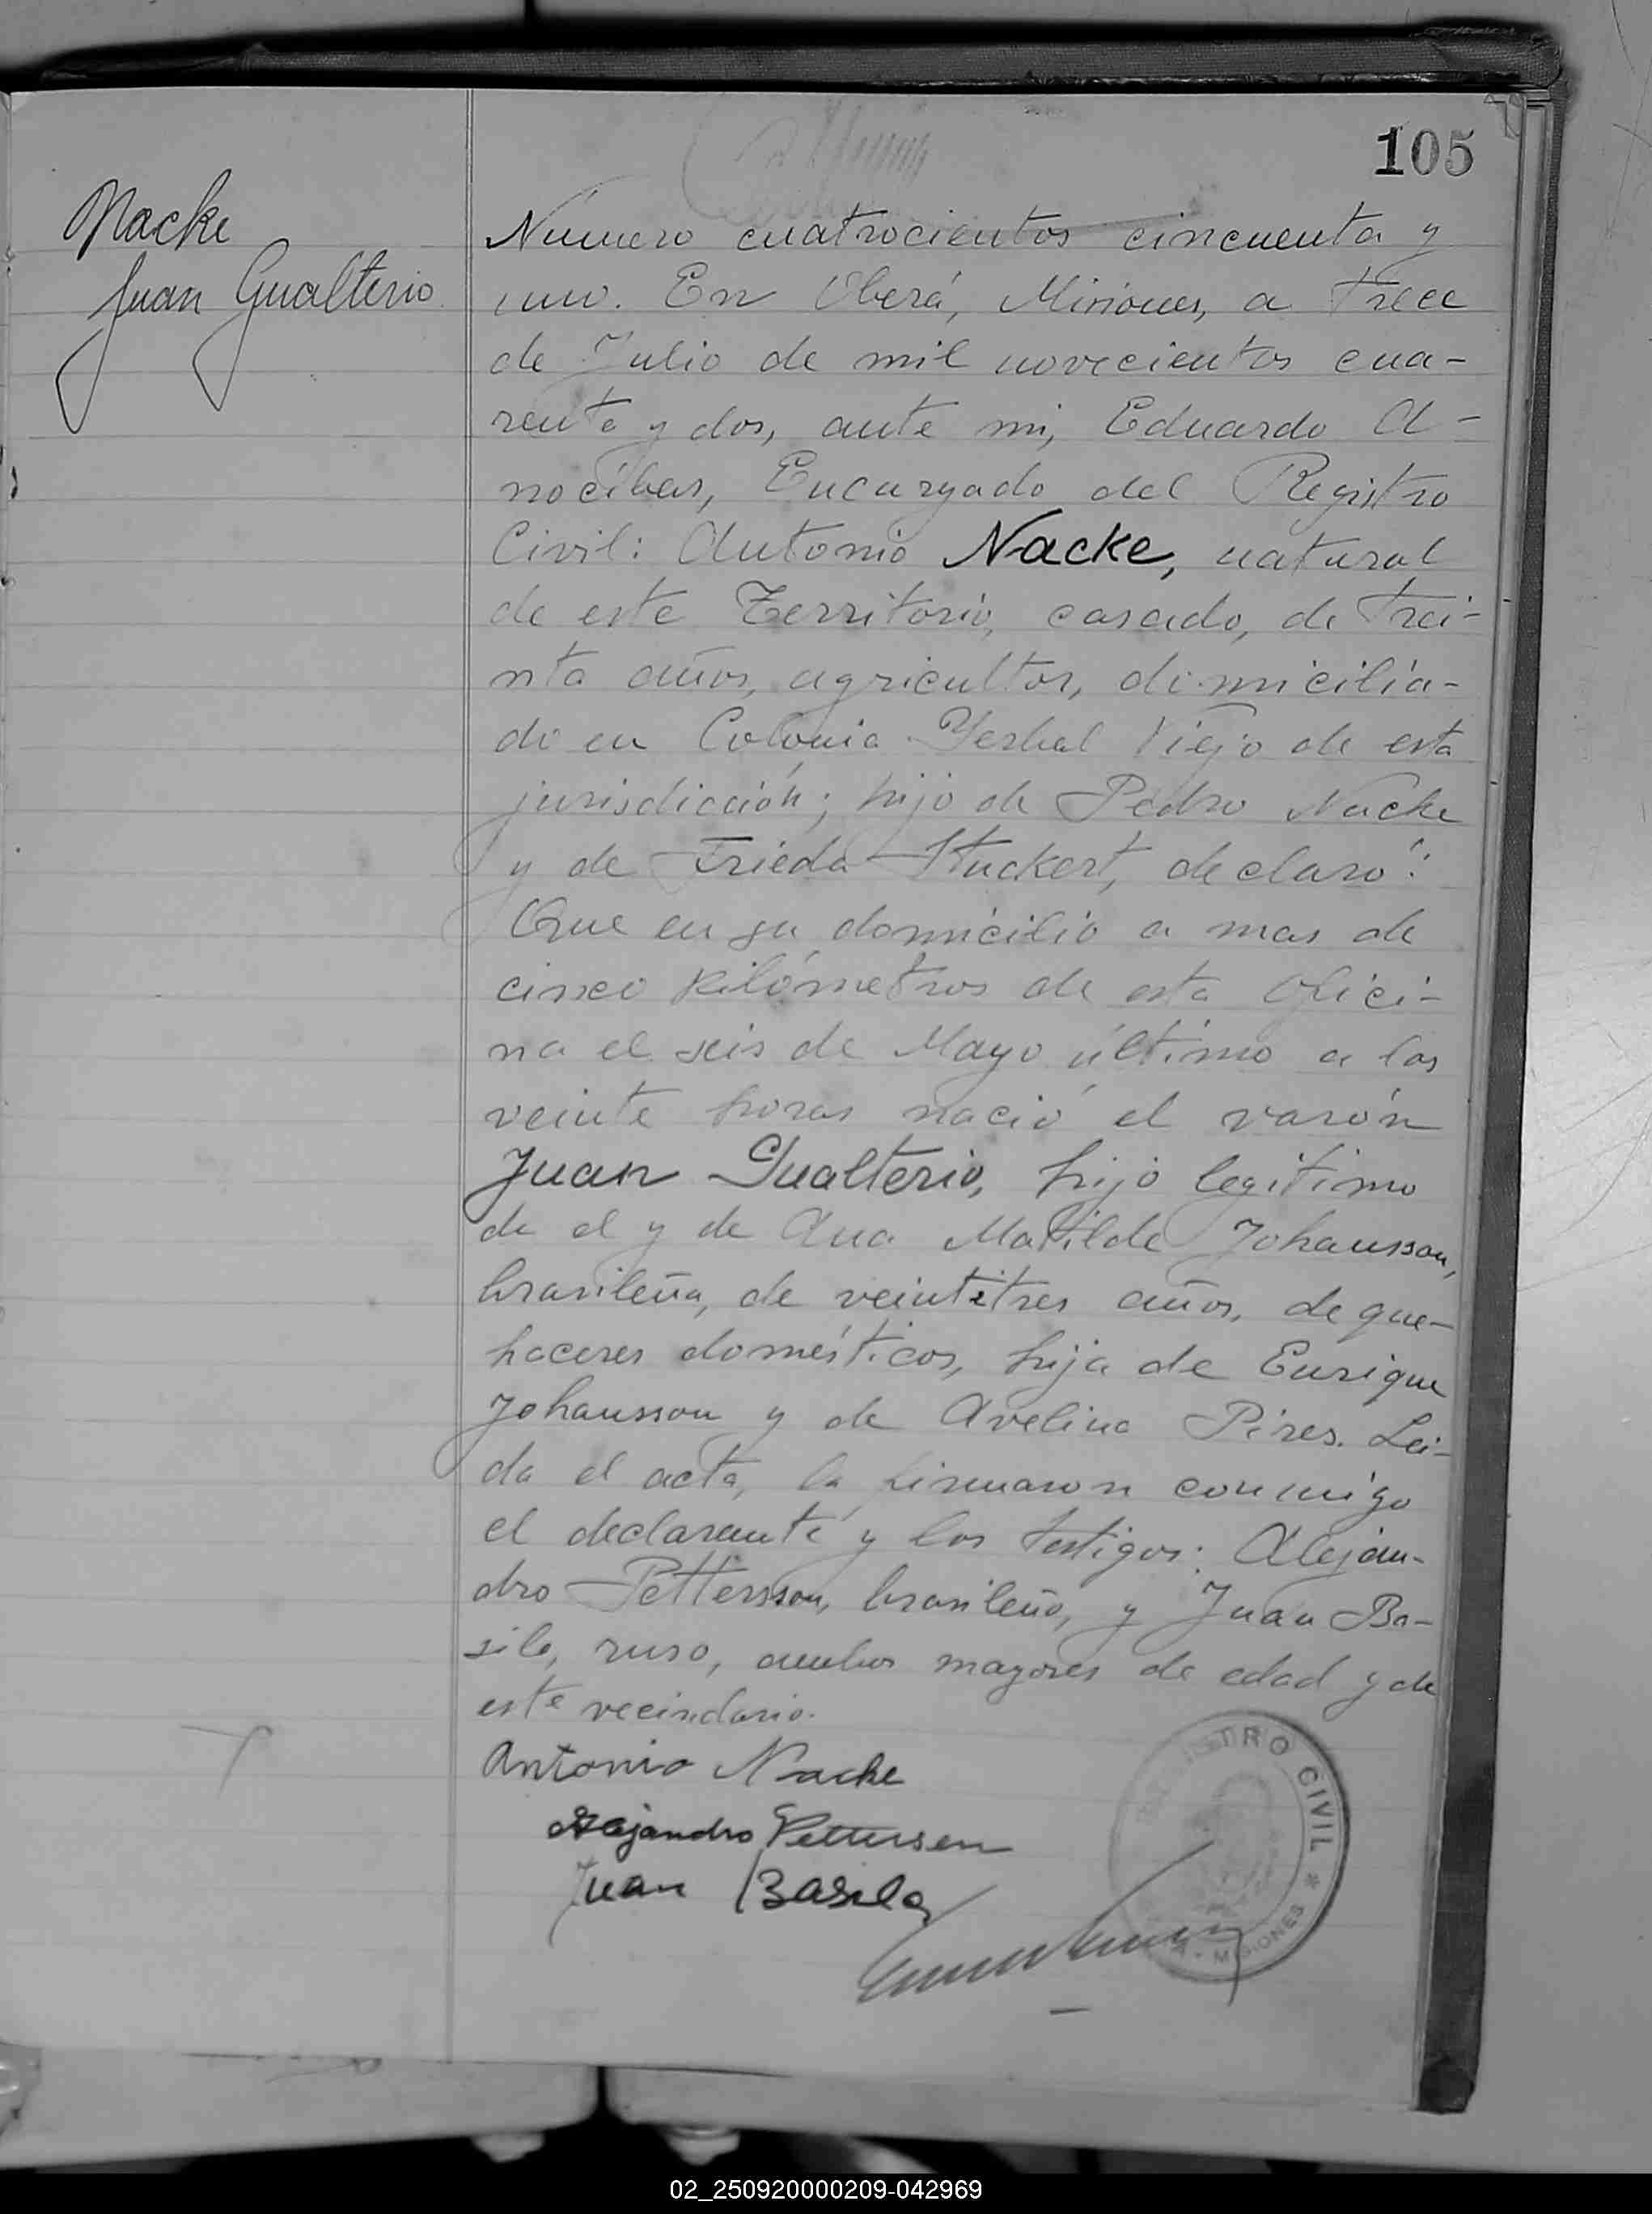 105
Nacke
Juan Gualterio
Número cuatrocientos cincuenta y
uno. En Oberá, Misiones, a trece
de Julio de mil novecientos cua-
renta y dos, ante mi, Eduardo A-
nocíbar, Encargado del Registro
Civil: Antonio Nacke, natural
de este Territorio, casado, de trei-
nta años, agricultor, domicilia-
do en Colonia Yerbal Viejo de esta
jurisdicción; hijo de Pedro Nacke
y de Frieda Stuckert, declaró:
Que en su domicilio a mas de
cinco kilómetros de esta Ofici-
na el seis de Mayo último a las
veinte horas nació el varón
Juan Gualterio, hijo legítimo
de el y de Ana Matilde Johansson,
brasileña, de veintitres años, de que-
haceres domésticos, hija de Enrique
Johansson y de Avelina Pires. Lei-
da el acta, la firmaron conmigo
el declarante y los testigos: Alejan-
dro Pettersson, brasileño, y Juan Ba-
sile, ruso, ambos mayores de edad y de
este vecindario.
Antonio Nacke
Alejandro Pettersen
Juan Basila
REGISTRO CIVIL *
MISIONES
02_250920000209-042969